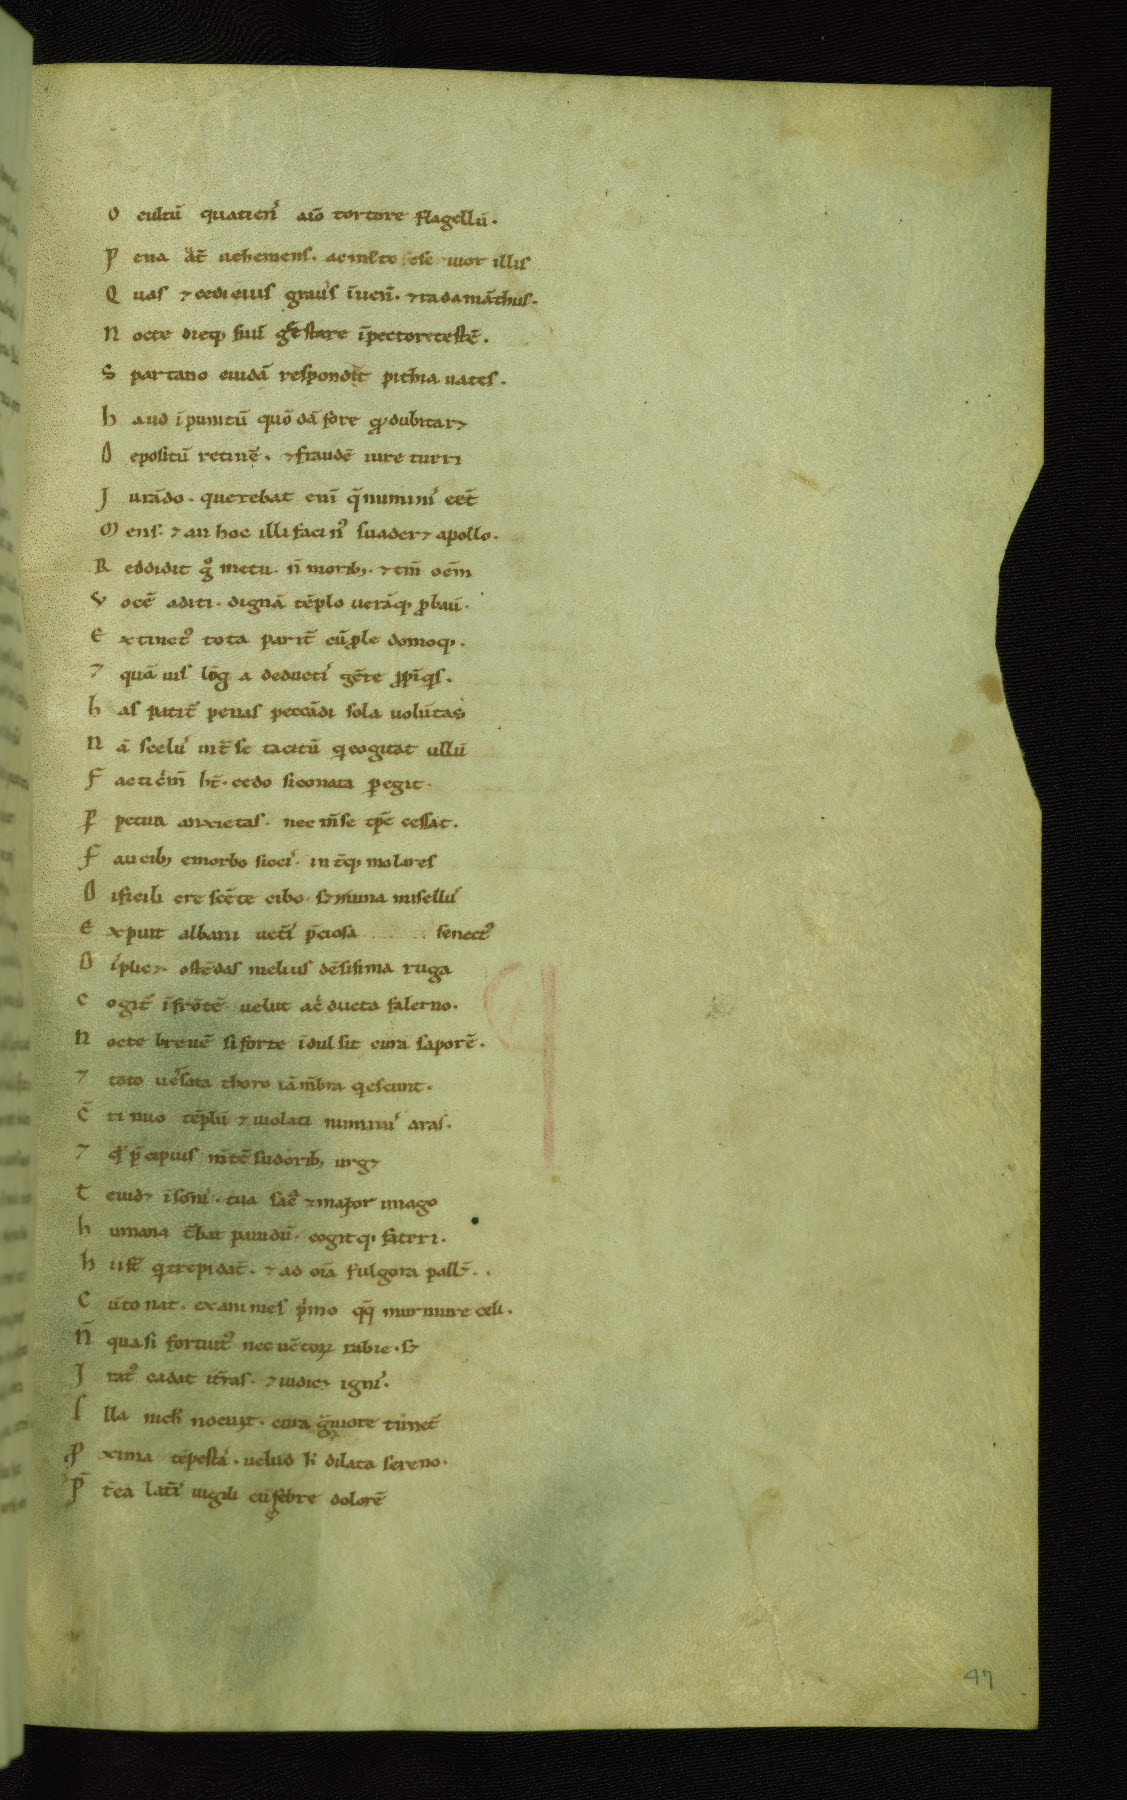 O cultũ quatien᷒ aĩo tortore flagellũ.
P ena aũt uehemens. ac mlto seuior illis
Q uas ⁊ cedicius grauis ĩuen̄. ⁊ radamãthus.
N octe dieq; suũ gestare ĩ pectore testẽ.
S partano cuidã respondit pithia uates.
h aud ĩpunitũ quõdã fore qđ dubitar&
D epositũ retinẽ. ⁊ fraudẽ iure tueri
J urãdo. querebat eni᷒ q̃ numini᷒ eẽt
M ens. ⁊ an hoc illi facin᷒ suader& apollo.
R eddidit g̊ metu. ñ morib;. ⁊ tm̃ oẽm
V ocẽ aditi. dignã tẽplo uerãq; ꝓbaũ.
E xtinct᷒ tota parit̃ cũ ꝓle domoq;.
⁊ quãuis lõg a deducti᷒ gẽte ꝓpĩqis.
h as patit̃ penas peccãdi sola uolũtas
N ã scelu᷒ int̃ se tacitũ qi cogitat ullũ
F acti c̃m̃ ht̃. cedo si conata ꝑegit.
P̱ petua anxietas. nec m̃se tꝑe cessat.
F aucib; e morbo sicci᷒. int̃q; molares
D ificili crescẽte cibo. s& uina misellu᷒
E xpuit albani uet̃i᷒ p̃ciosa senect᷒
D isplic&. ostẽdas melius dẽsisima ruga
C ogit̃ ĩ frõtẽ uelut ac̃ ducta falerno.
N octe breuẽ si forte ĩdulsit cura saporẽ.
⁊ toto uersata thoro iã m̃bra qiescunt.
C̃ tinuo tẽplũ ⁊ uiolati numini᷒ aras.
⁊ qđ p̃cipuis m̃tẽ sudorib; urg&
T euid& ĩ sõni᷒. tua sac̃ ⁊ maior imago
h umana t̃bat pauidũ. cogitq; fateri.
h ii st̃ qi trepidãt. ⁊ ad oĩa fulgora pallẽ.
C ũ tonat. exanimes p̃mo qq̃ murmure celi.
Ñ quasi fortuit᷒ nec uẽtoꝝ rabie. s&
J rat᷒ cadat ĩ t̃ras. ⁊ iudic& igni᷒.
I lla nich̃ nocuit. cura g̃uiore tim̃et
ꝓ xima tẽpesta᷒. uelud h᷒ dilata sereno.
P̃ t̃ea lat̃i᷒ uigili cũ febre dolorẽ
47